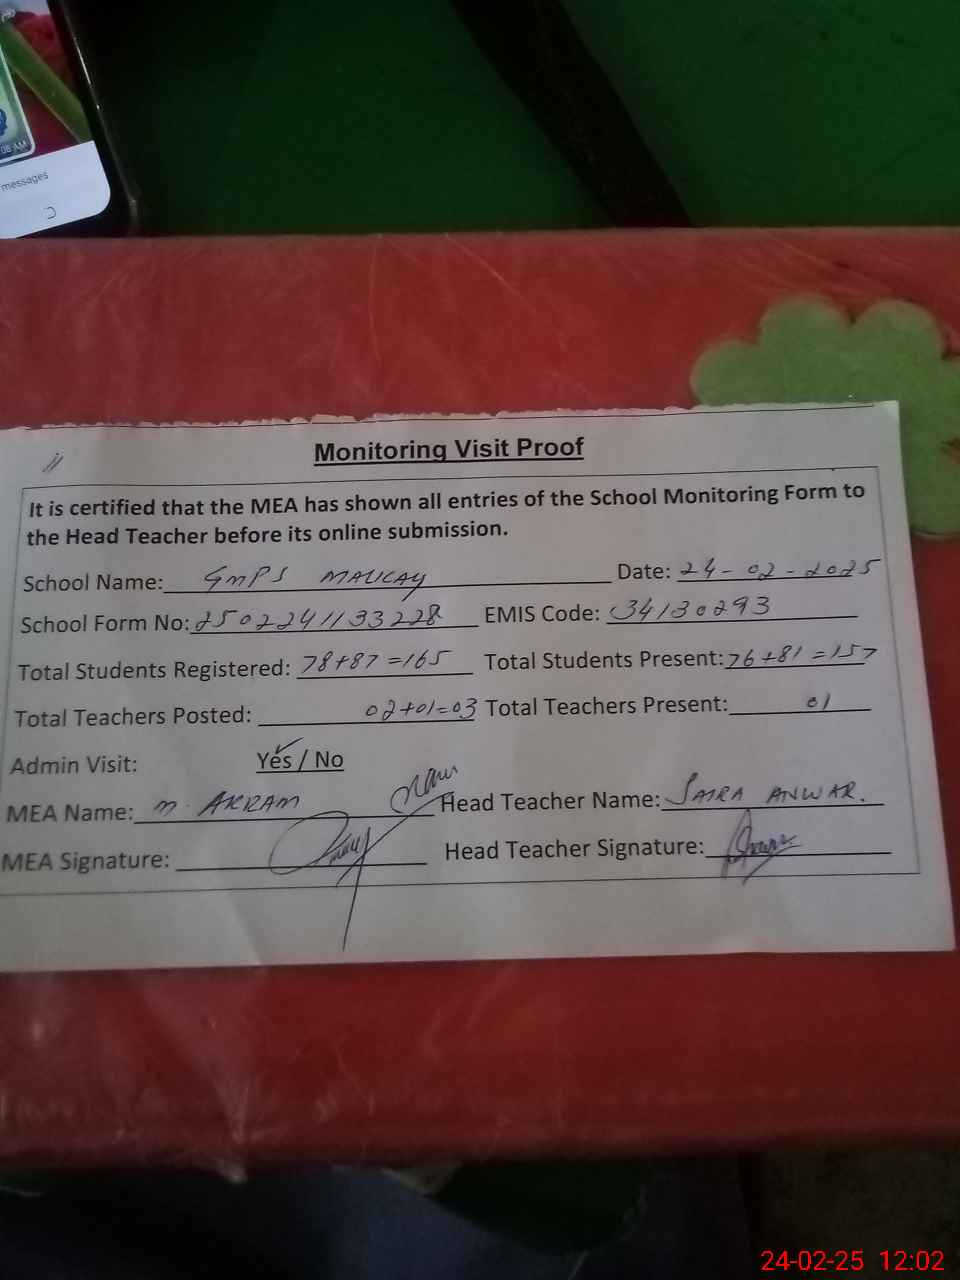 08 AM
messages
Monitoring Visit Proof
It is certified that the MEA has shown all entries of the School Monitoring Form to
the Head Teacher before its online submission.
School Name: GMPS MALICAY Date: 24-02-2025
School Form No: 2502241133228 EMIS Code: 34130293
Total Students Registered: 78+87=165 Total Students Present: 76+81=157
Total Teachers Posted: 02+01=03 Total Teachers Present: 01
Admin Visit: Yes / No
MEA Name: M. AKRAM Head Teacher Name: SAIRA ANWAR.
MEA Signature: Head Teacher Signature:
24-02-25 12:02